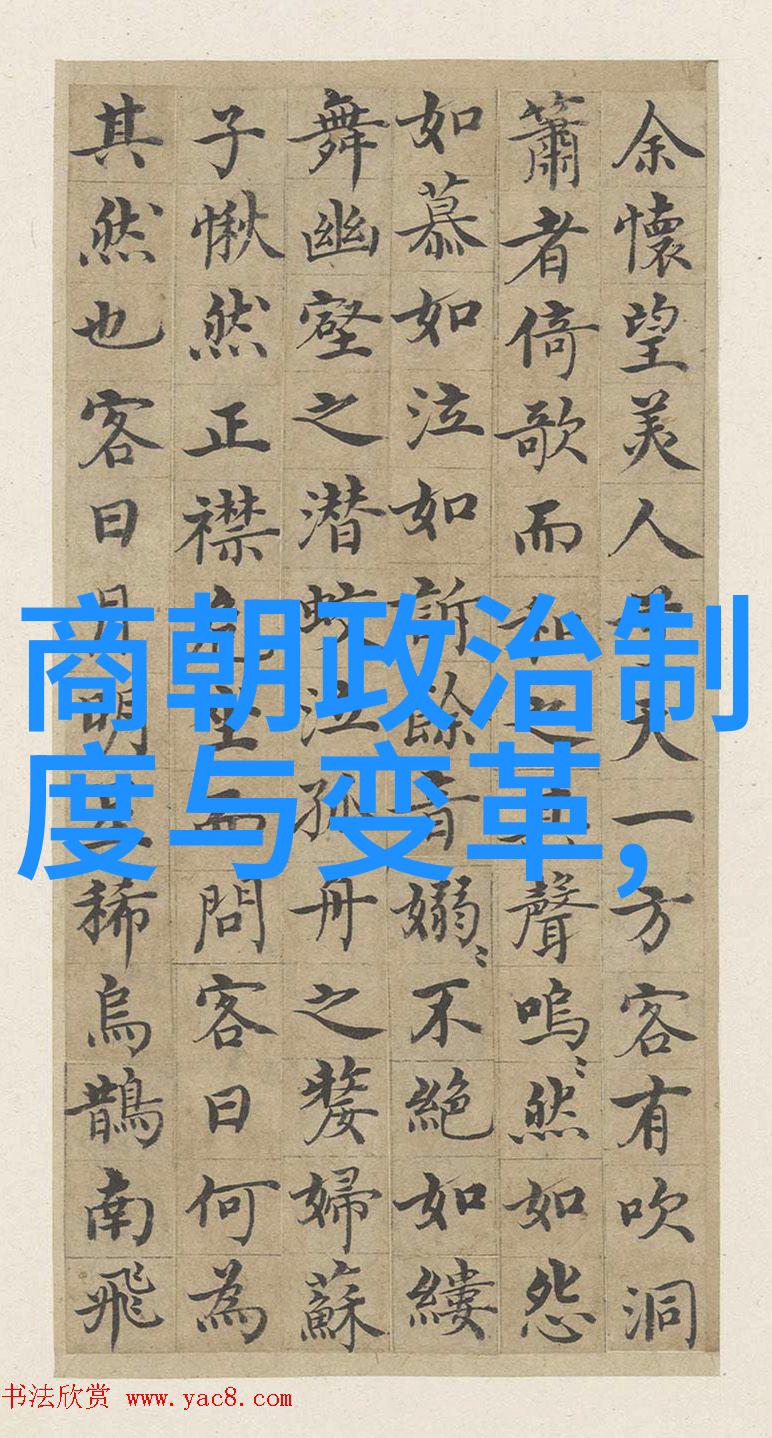 余懷望美人兮天一方客有吹洞
簫者倚歌而和之其聲嗚〻然如怨
如慕如泣如訴餘音嫋〻不絕如縷
舞幽壑之潛蛟泣孤舟之嫠婦蘇
子愀然正襟危坐而問客曰何為
其然也客曰月明星稀烏鵲南飛
商朝政治制
度与变革,
书法欣赏 www.yac8.com